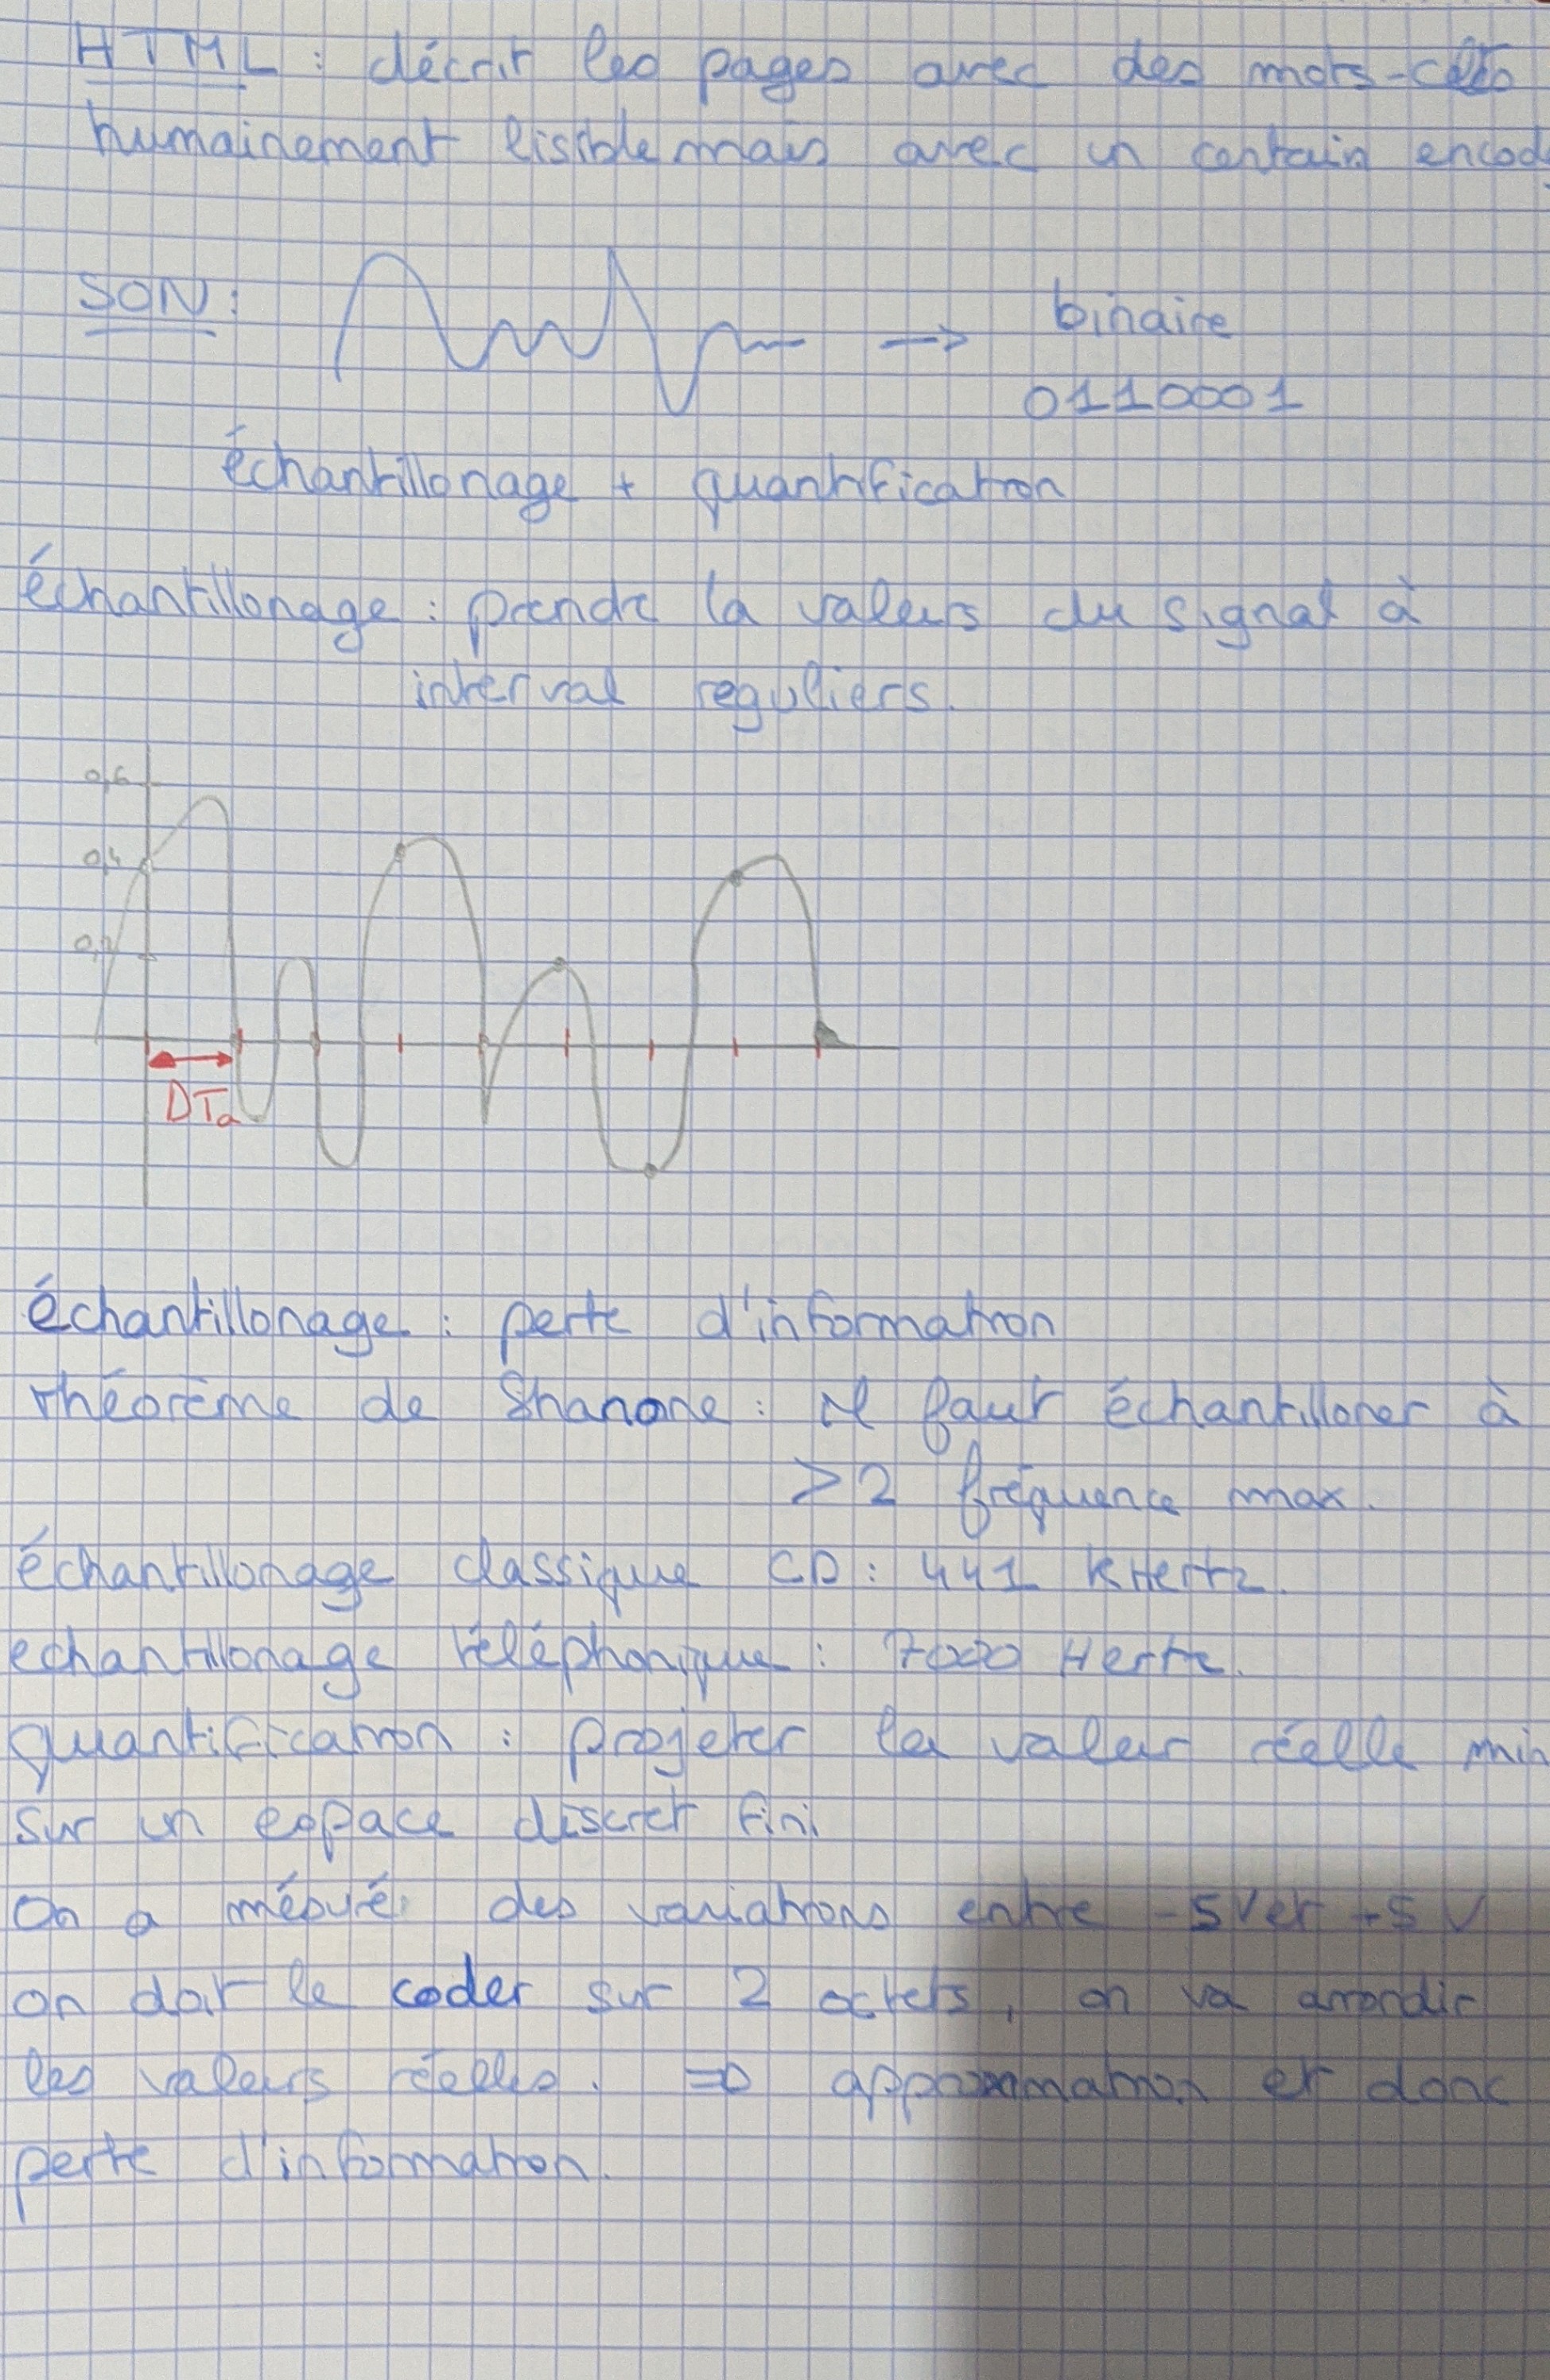 HTML : décrit les pages avec des mots-clés
humainement lisible mais avec un certain encod
SON :
binaire
0110001
échantillonage + quantification
échantillonage : prendre la valeurs du signal à
interval reguliers.
0,6
0,4
0,2
DTa
échantillonage : perte d'information
théorème de Shanone : il faut échantilloner à
>2 fréquence max.
échantillonage classique CD : 441 KHertz.
echantillonage téléphonique : 7000 Hertz.
quantification : projeter la valeur réelle min
sur un espace discret fini
On a mésuré des variations entre -5V et +5V
on doit le coder sur 2 octets, on va arrondir
les valeurs réelles. => approximation et donc
perte d'information.